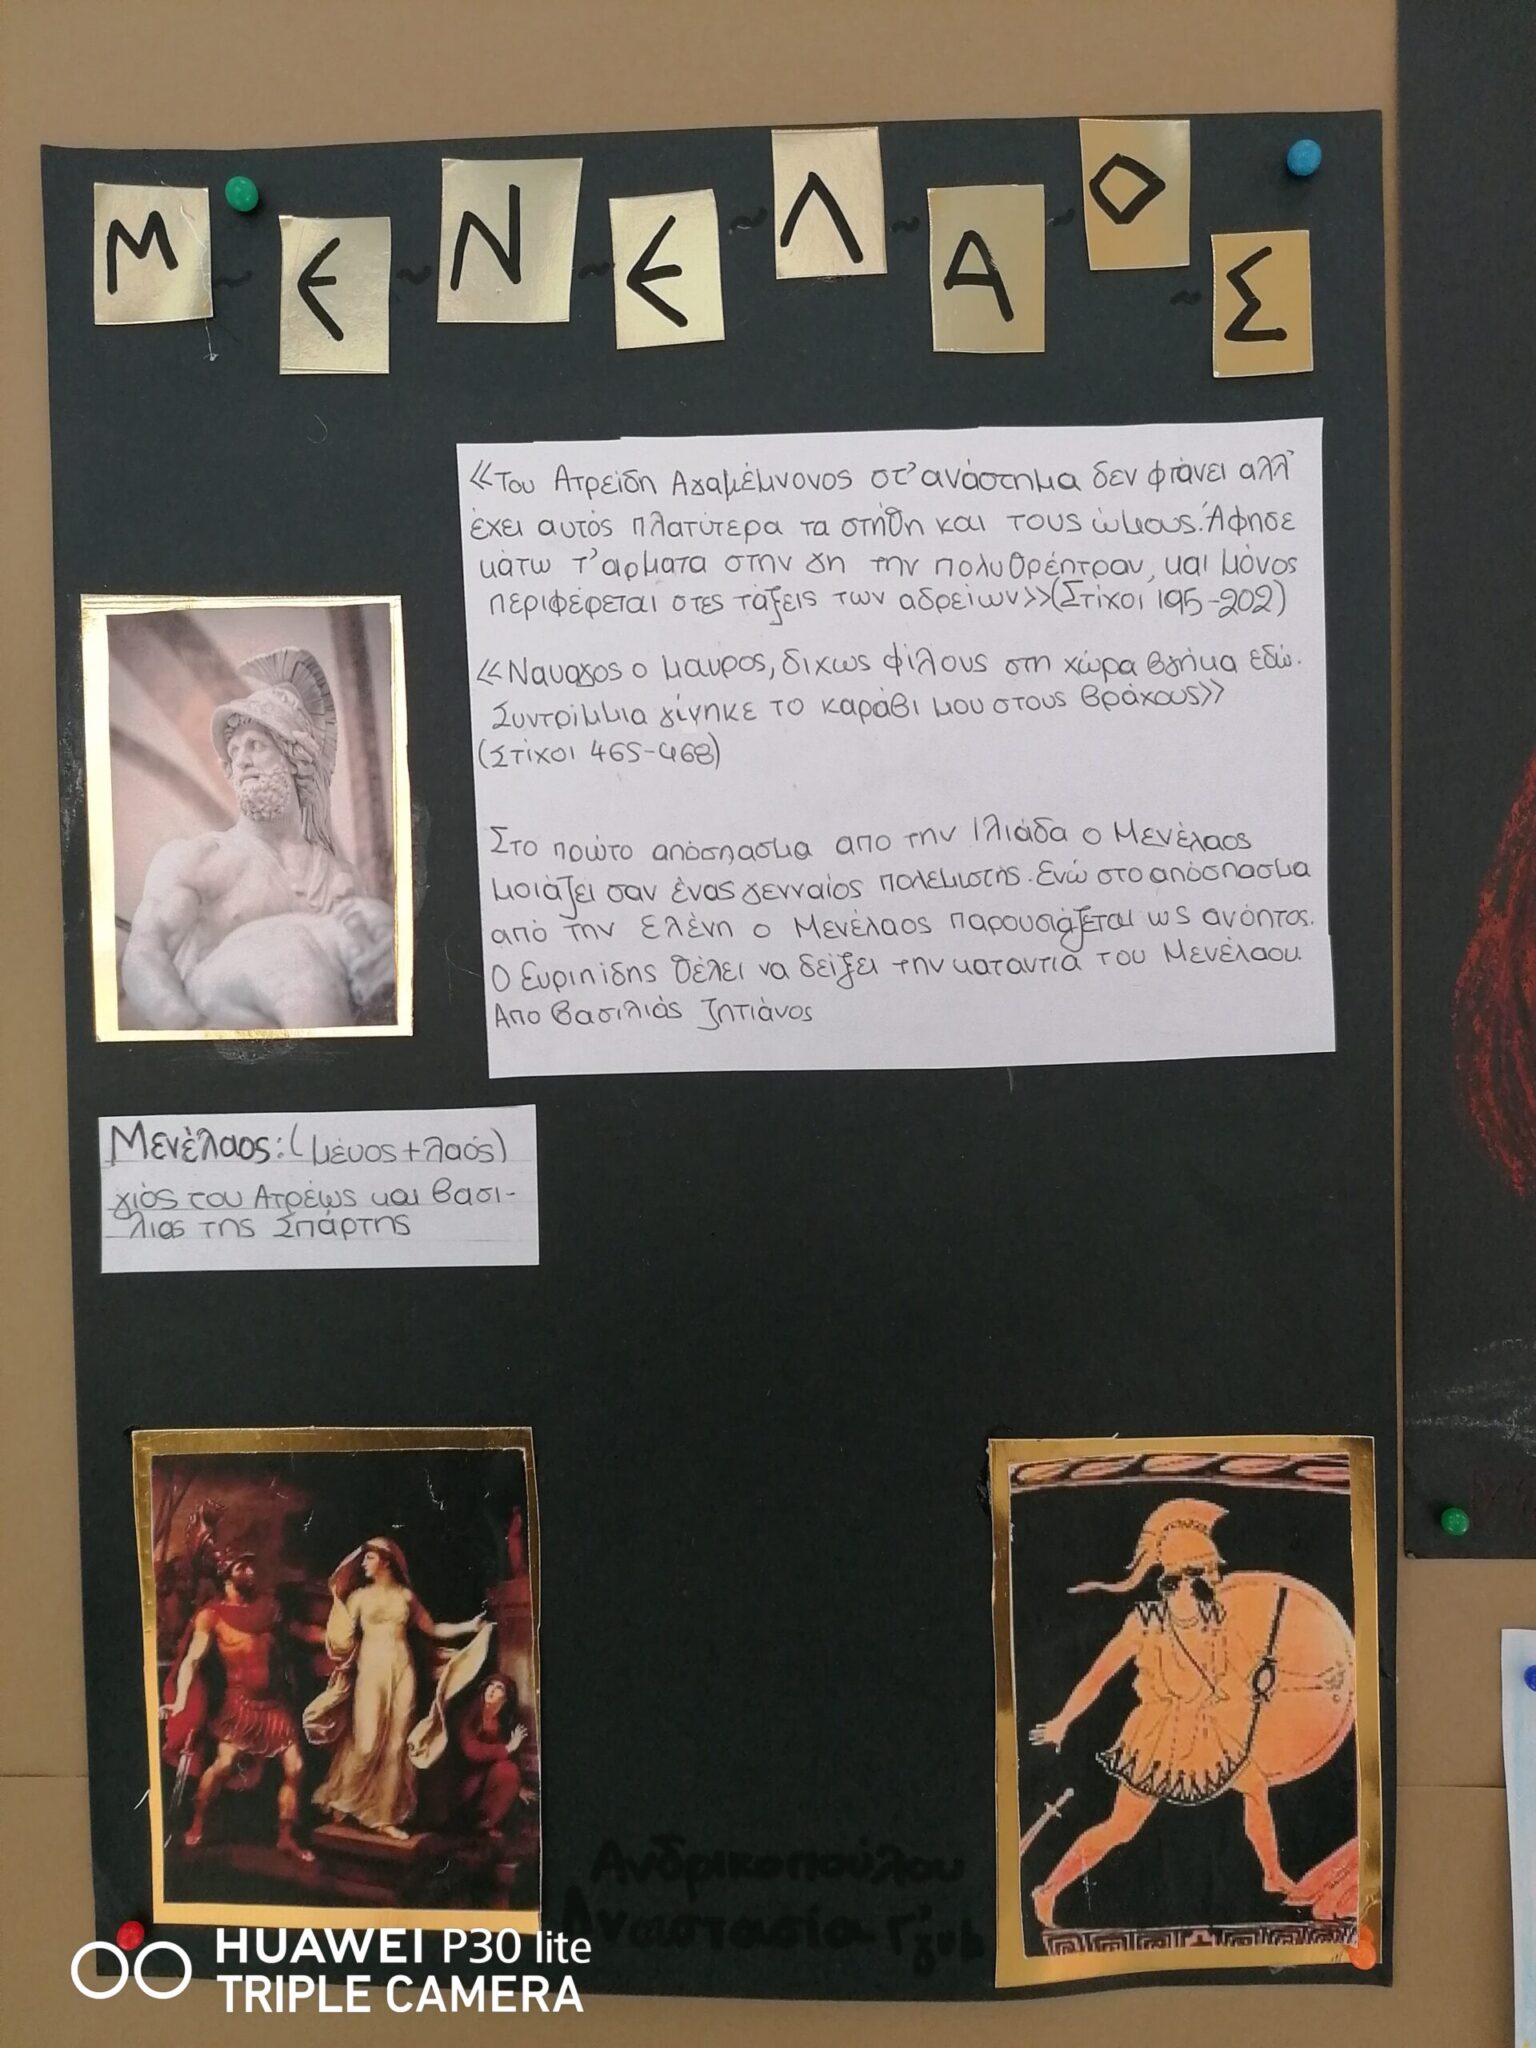 Μ ~ Ε ~ Ν ~ Ε ~ Λ ~ Α ~ Ο ~ Σ
«Του Ατρείδη Αγαμέμνονος στ' ανάστημα δεν φτάνει αλλ'
έχει αυτός πλατύτερα τα στήθη και τους ώμους. Άφησε
κάτω τ' αρματα στην γη την πολυθρέπτραν, και μόνος
περιφέρεται στες τάξεις των αδρείων»(Στίχοι 195-202)
«Ναυαγος ο μαυρος, διχως φίλους στη χώρα βγήκα εδώ.
Συντρίμμια γίνηκε το καράβι μου στους βράχους»
(Στίχοι 465-468)
Στο πρώτο απόσπασμα απο την Ιλιάδα ο Μενέλαος
μοιάζει σαν ένας γενναίος πολεμιστής. Ενώ στο απόσπασμα
από την Ελένη ο Μενέλαος παρουσιάζεται ως ανόητος.
Ο Ευριπίδης θέλει να δείξει την καταντια του Μενέλαου.
Απο βασιλιάς ζητιάνος
Μενέλαος: (μένος+λαός)
γιός του Ατρέως και βασι-
λιας της Σπάρτης
Ανδρικοπούλου
Αναστασία Γ'
HUAWEI P30 lite
TRIPLE CAMERA